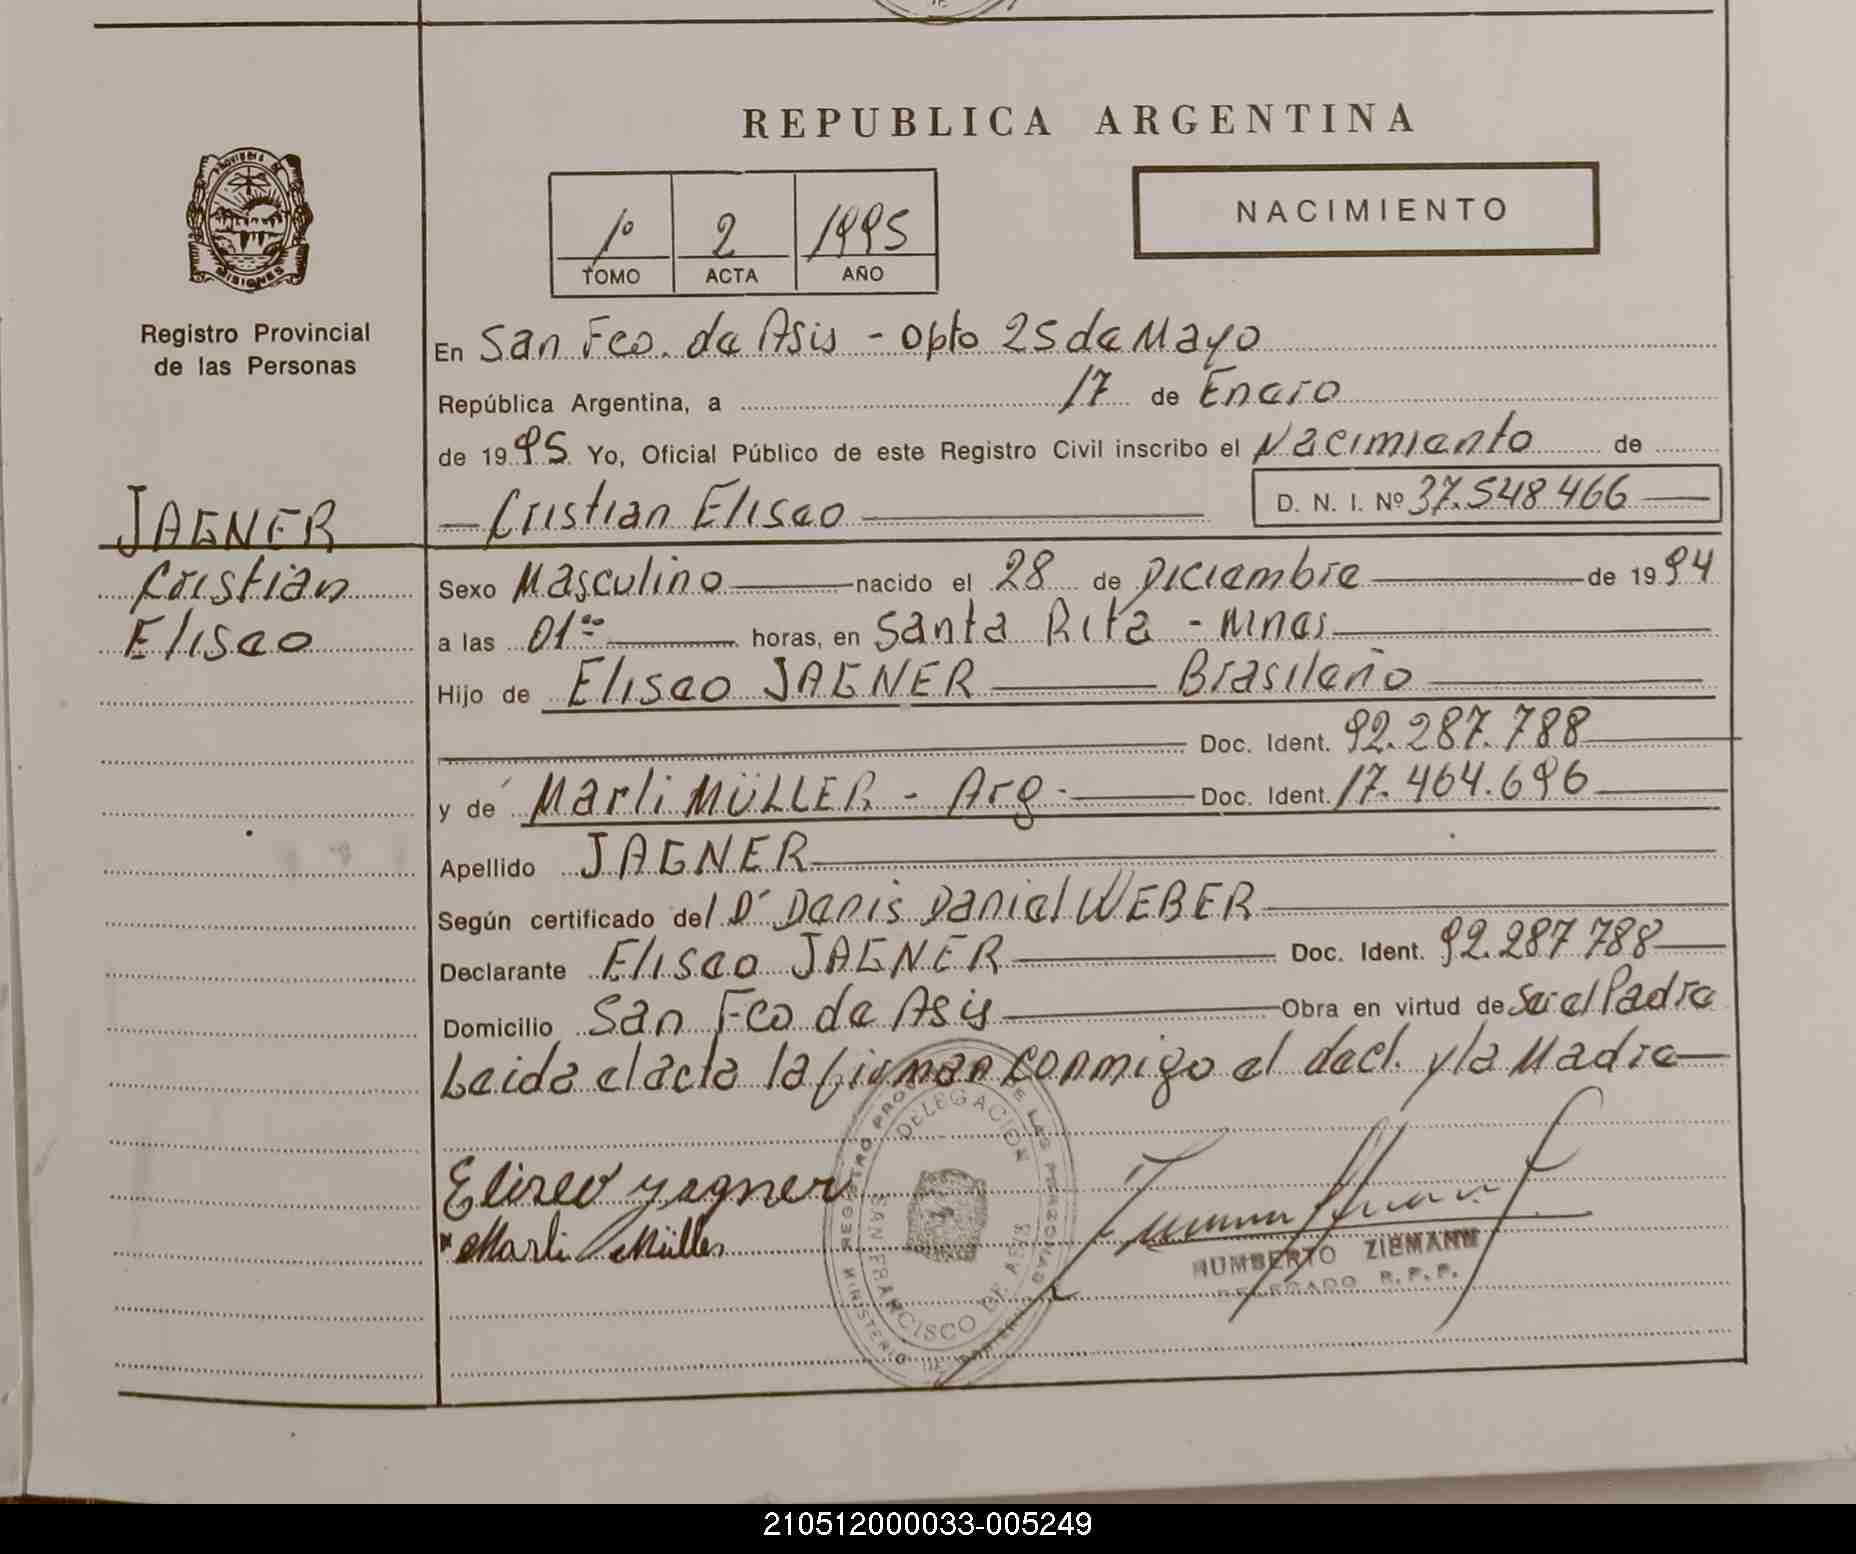 REPUBLICA ARGENTINA
Provincia de
MISIONES
Registro Provincial
de las Personas
1º 2 1995
TOMO ACTA AÑO
NACIMIENTO
En San Fco. de Asis - Dpto 25 de Mayo
República Argentina, a 17 de Enero
de 1995 Yo, Oficial Público de este Registro Civil inscribo el Nacimiento de
Cristian Eliseo D. N. I. Nº 37.548.466
JAGNER
Cristian
Eliseo
Sexo Masculino nacido el 28 de Diciembre de 1994
a las 01:00 horas, en Santa Rita - Mnes
Hijo de Eliseo JAGNER Brasileño
Doc. Ident. 92.287.788
y de Marli MÜLLER - Arg. Doc. Ident. 17.464.696
Apellido JAGNER
Según certificado del Dr Denis Daniel WEBER
Declarante Eliseo JAGNER Doc. Ident. 92.287.788
Domicilio San Fco de Asis Obra en virtud de Ser el Padre
Leida el acta la firman conmigo el decl. y la Madre
Eliseo yagner
Marli Müller
REGISTRO PROVINCIAL DE LAS PERSONAS
DELEGACION
SAN FRANCISCO DE ASIS
MINISTERIO DE
HUMBERTO ZIEMANN
DELEGADO R.P.P.
210512000033-005249